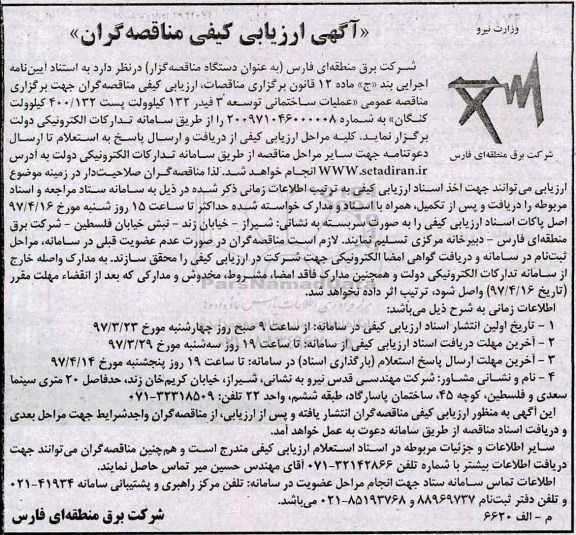 وزارت نیرو
«آگهی ارزیابی کیفی مناقصه‌گران»
شرکت برق منطقه‌ای فارس
شرکت برق منطقه‌ای فارس (به عنوان دستگاه مناقصه‌گزار) درنظر دارد به استناد آیین‌نامه
اجرایی بند «ج» ماده ۱۲ قانون برگزاری مناقصات، ارزیابی کیفی مناقصه‌گران جهت برگزاری
مناقصه عمومی «عملیات ساختمانی توسعه ۳ فیدر ۱۳۲ کیلوولت پست ۴۰۰/۱۳۲ کیلوولت
کنگان» به شماره ۲۰۰۹۷۱۰۴۶۰۰۰۰۰۸ را از طریق سامانه تدارکات الکترونیکی دولت
برگزار نماید. کلیه مراحل ارزیابی کیفی از دریافت و ارسال پاسخ به استعلام تا ارسال
دعوتنامه جهت سایر مراحل مناقصه از طریق سامانه تدارکات الکترونیکی دولت به آدرس
WWW.setadiran.ir انجام خواهد شد. لذا مناقصه‌گران صلاحیت‌دار در زمینه موضوع
ارزیابی می‌توانند جهت اخذ اسناد ارزیابی کیفی به ترتیب اطلاعات زمانی ذکر شده در ذیل به سامانه ستاد مراجعه و اسناد
مربوطه را دریافت و پس از تکمیل، همراه با اسناد و مدارک خواسته شده حداکثر تا ساعت ۱۵ روز شنبه مورخ ۹۷/۴/۱۶
اصل پاکات اسناد ارزیابی کیفی را به صورت سربسته به نشانی: شیراز - خیابان زند - نبش خیابان فلسطین - شرکت برق
منطقه‌ای فارس - دبیرخانه مرکزی تسلیم نمایند. لازم است مناقصه‌گران در صورت عدم عضویت قبلی در سامانه، مراحل
ثبت‌نام در سامانه و دریافت گواهی امضا الکترونیکی جهت شرکت در ارزیابی کیفی را محقق سازند. به مدارک واصله خارج
از سامانه تدارکات الکترونیکی دولت و همچنین مدارک فاقد امضا، مشروط، مخدوش و مدارکی که بعد از انقضاء مهلت مقرر
(تاریخ ۹۷/۴/۱۶) واصل شود، ترتیب اثر داده نخواهد شد.
اطلاعات زمانی به شرح ذیل می‌باشد:
۱ - تاریخ اولین انتشار اسناد ارزیابی کیفی در سامانه: از ساعت ۹ صبح روز چهارشنبه مورخ ۹۷/۳/۲۳
۲ - آخرین مهلت دریافت اسناد ارزیابی کیفی از سامانه: تا ساعت ۱۹ روز سه‌شنبه مورخ ۹۷/۳/۲۹
۳ - آخرین مهلت ارسال پاسخ استعلام (بارگذاری اسناد) در سامانه: تا ساعت ۱۹ روز پنجشنبه مورخ ۹۷/۴/۱۴
۴ - نام و نشانی مشاور: شرکت مهندسی قدس نیرو به نشانی، شیراز، خیابان کریم‌خان زند، حدفاصل ۲۰ متری سینما
سعدی و فلسطین، کوچه ۴۵، ساختمان پاسارگاد، طبقه ششم، واحد ۲۲ تلفن: ۳۲۳۱۸۵۰۹-۰۷۱
این آگهی به منظور ارزیابی کیفی مناقصه‌گران انتشار یافته و پس از ارزیابی، از مناقصه‌گران واجدشرایط جهت مراحل بعدی
و دریافت اسناد مناقصه از طریق سامانه دعوت به عمل خواهد آمد.
سایر اطلاعات و جزئیات مربوطه در اسناد استعلام ارزیابی کیفی مندرج است و هم‌چنین مناقصه‌گران می‌توانند جهت
دریافت اطلاعات بیشتر با شماره تلفن ۳۲۱۴۲۸۶۶-۰۷۱ آقای مهندس حسین میر تماس حاصل نمایند.
اطلاعات تماس سامانه ستاد جهت انجام مراحل عضویت در سامانه: تلفن مرکز راهبری و پشتیبانی سامانه ۴۱۹۳۴-۰۲۱
و تلفن دفتر ثبت‌نام ۸۸۹۶۹۷۳۷ و ۸۵۱۹۳۷۶۸-۰۲۱ می‌باشد.
م - الف ۶۶۲۰
شرکت برق منطقه‌ای فارس